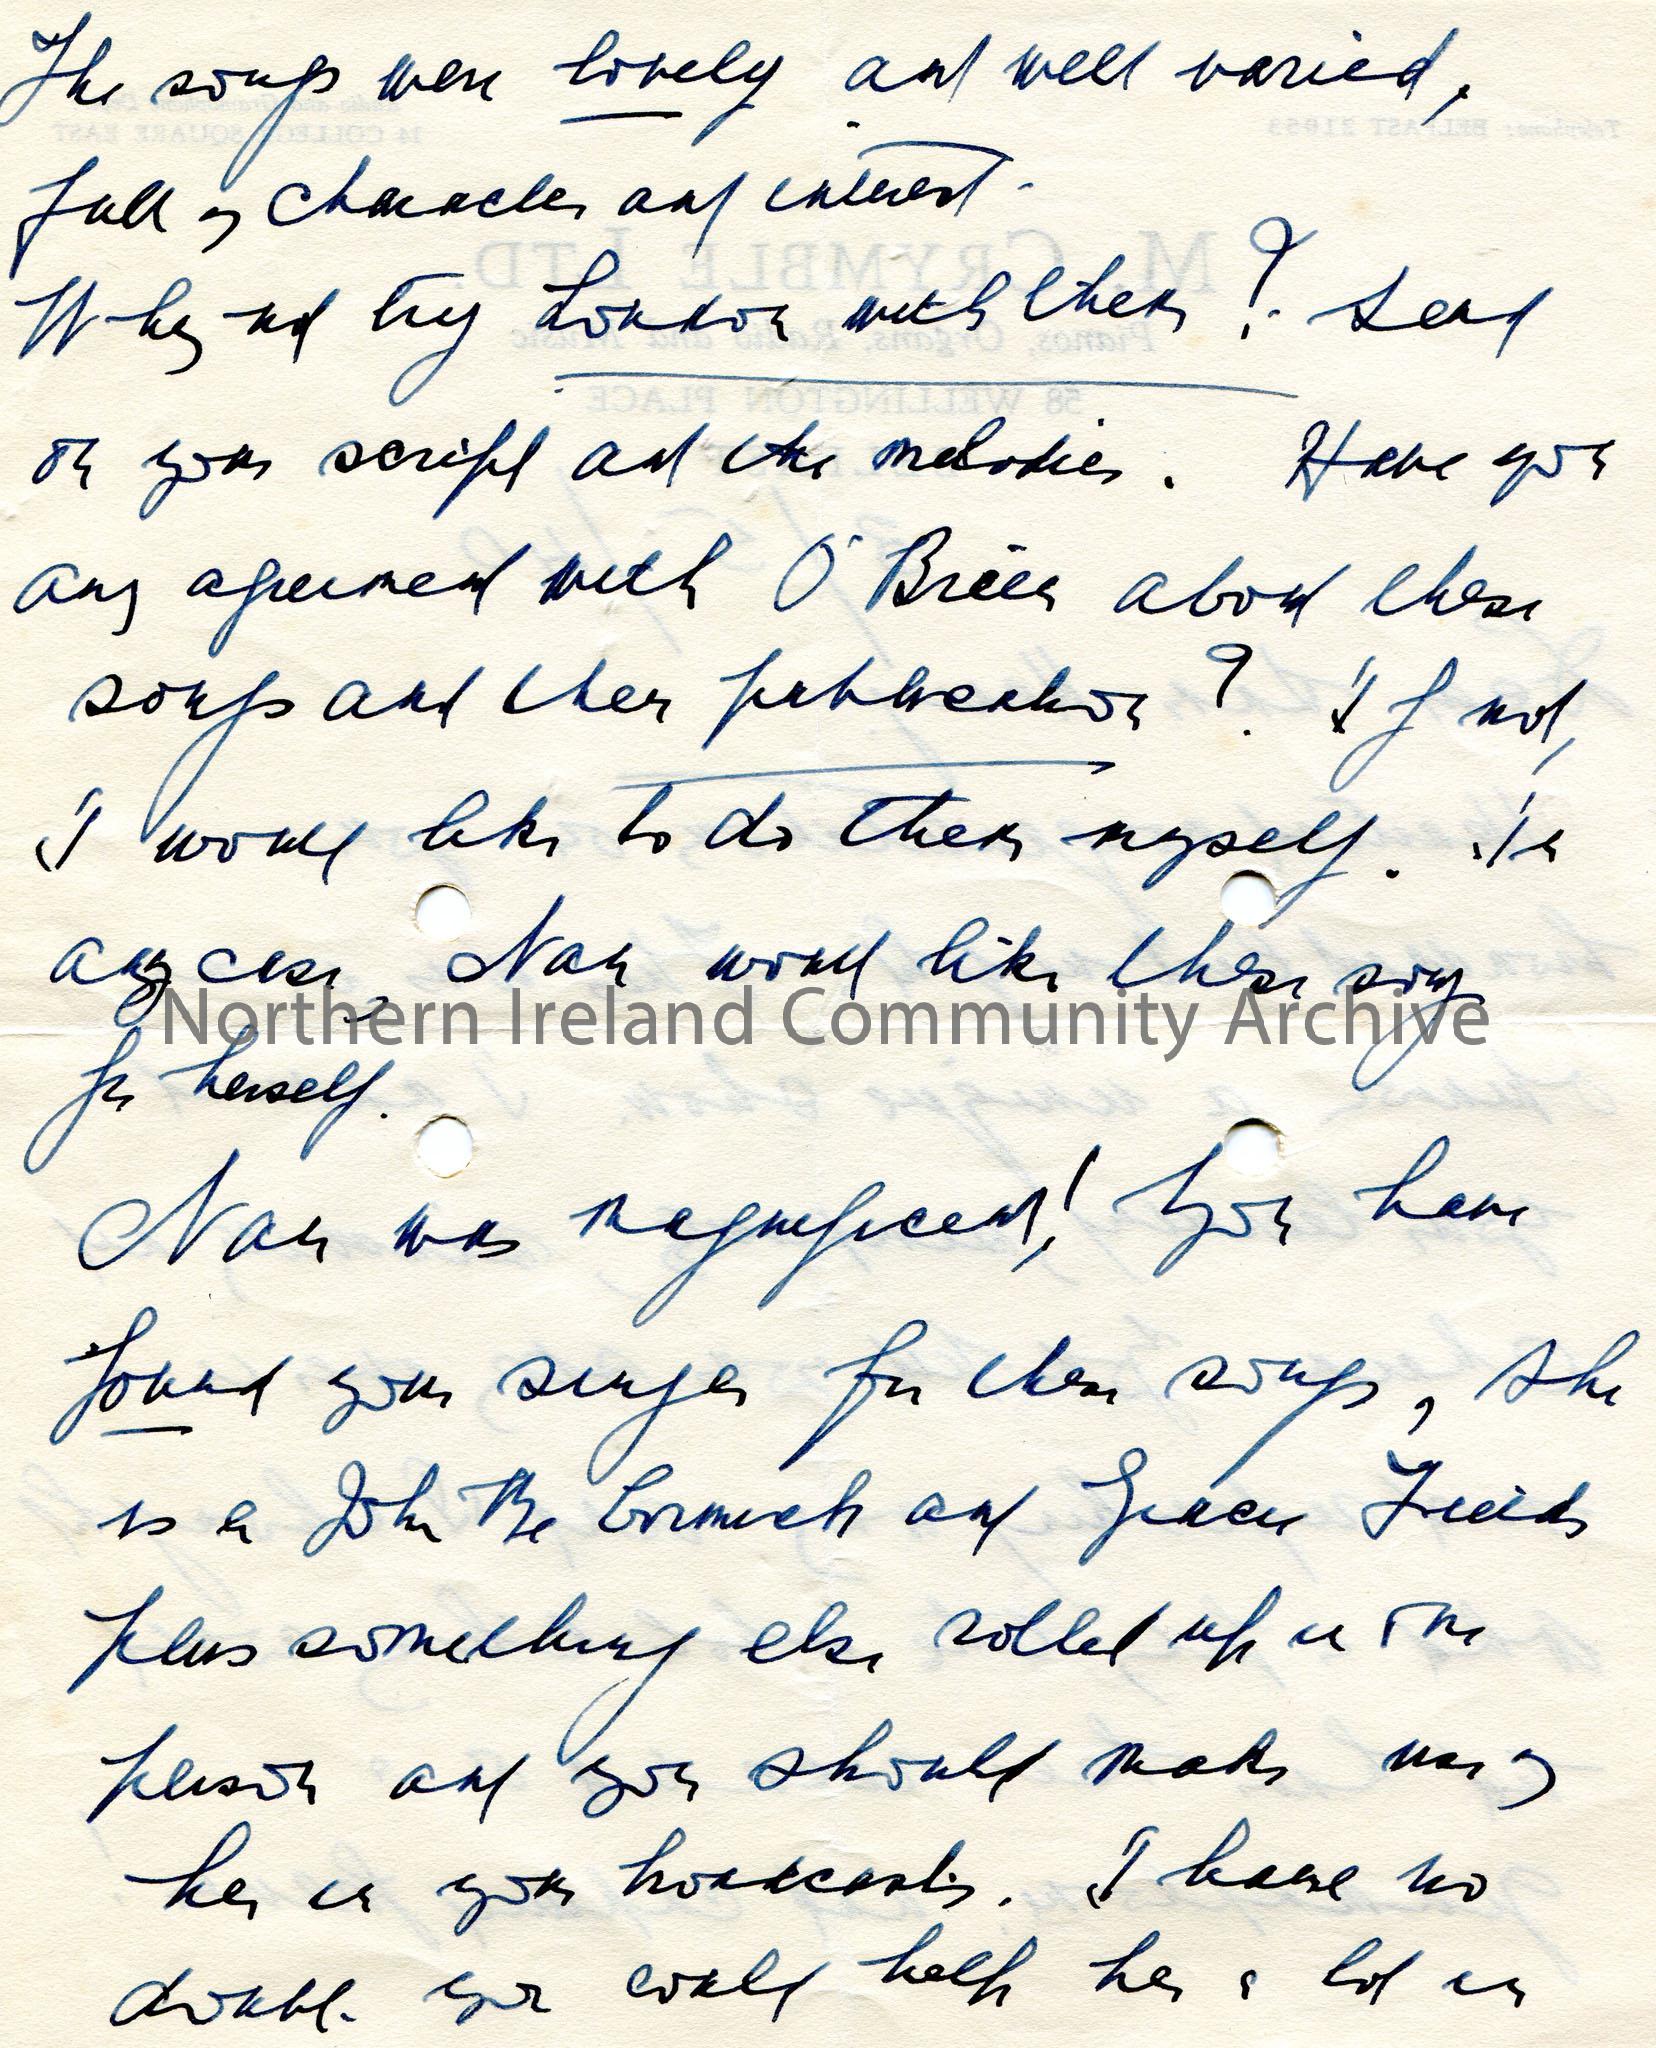 The songs were lovely and well varied,
full of character and interest.
Why not try London with them? Send
on your script and the melodies. Have you
any agreement with O'Brien about these
songs and their publication? If not,
I would like to do them myself. In
any case, Nan would like these song
for herself.
Northern Ireland Community Archive
Nan was magnificent! You have
found your singer for these songs, she
is a John McCormick and Gracie Fields
plus something else rolled up in one
person and you should make use of
her in your broadcasts. I have no
doubt you could help her a lot in
M. CRYMBLE LTD.
Pianos, Organs, Radio and Music
58 WELLINGTON PLACE
Telephone: BELFAST 21053
14 COLLEGE SQUARE EAST